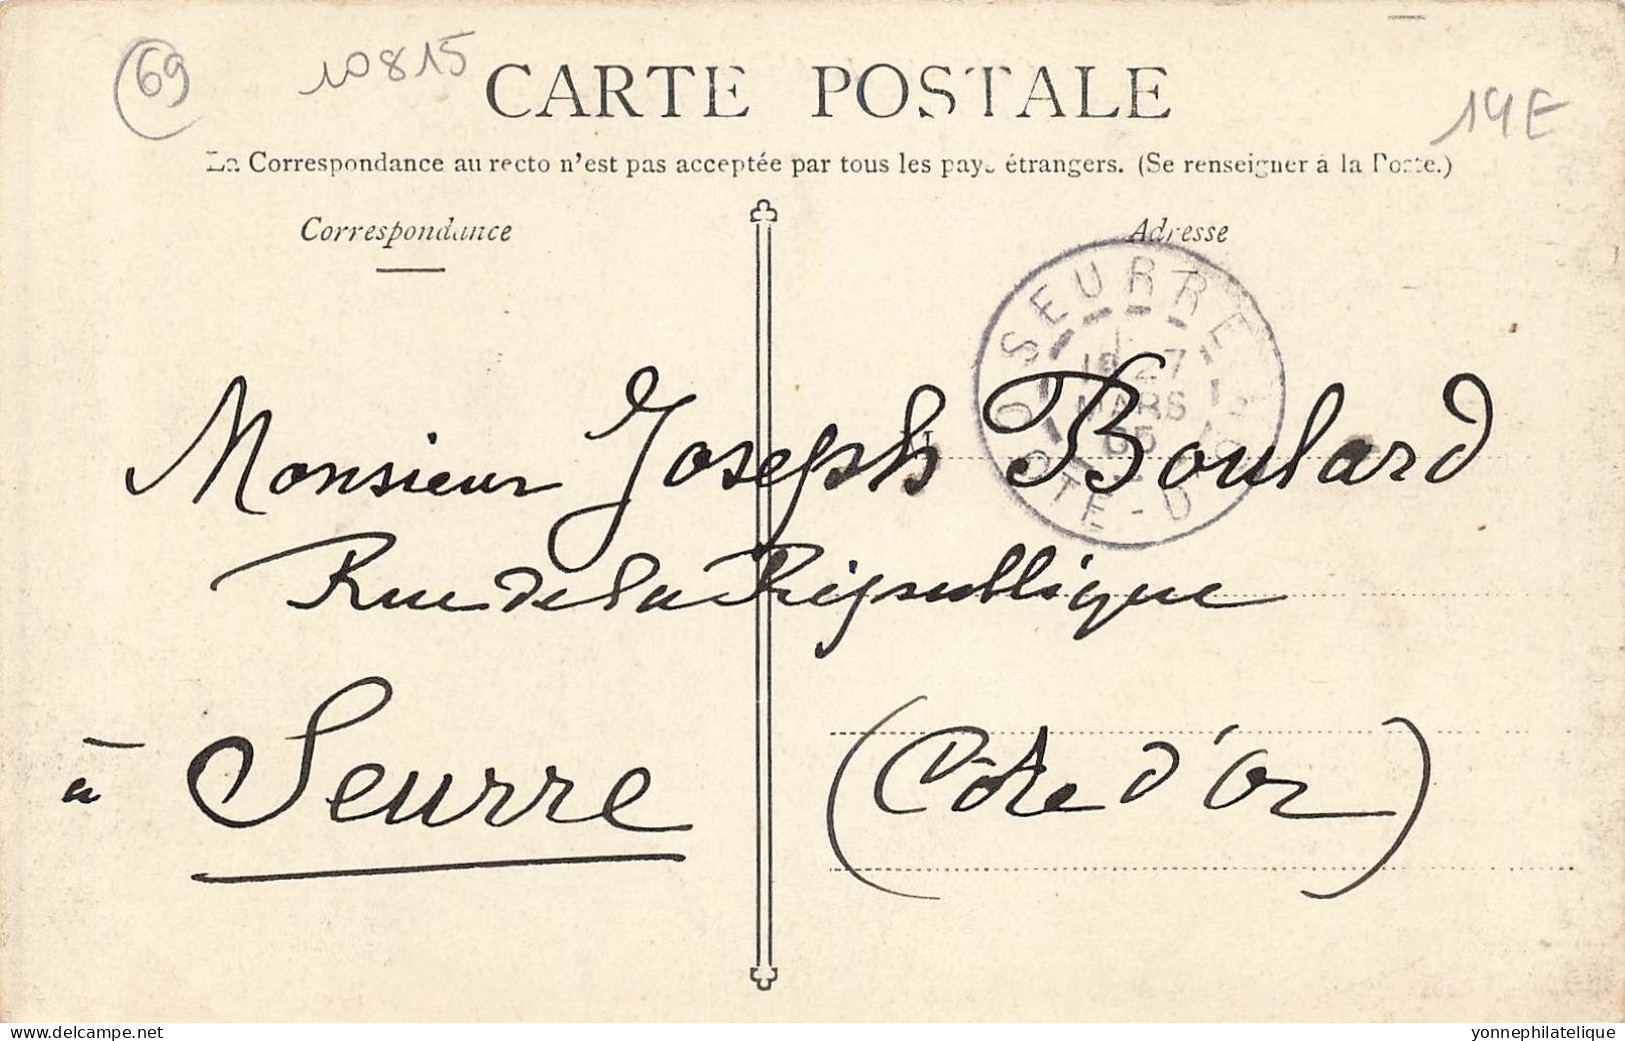 69
10815
14E
CARTE POSTALE
La Correspondance au recto n'est pas acceptée par tous les pays étrangers. (Se renseigner à la Poste.)
Correspondance
Adresse
SEURRE
27
MARS
05
CÔTE-D'OR
Monsieur Joseph Boulard
Rue de la République
à Seurre (Côte d'Or)
www.delcampe.net
yonnephilatelique